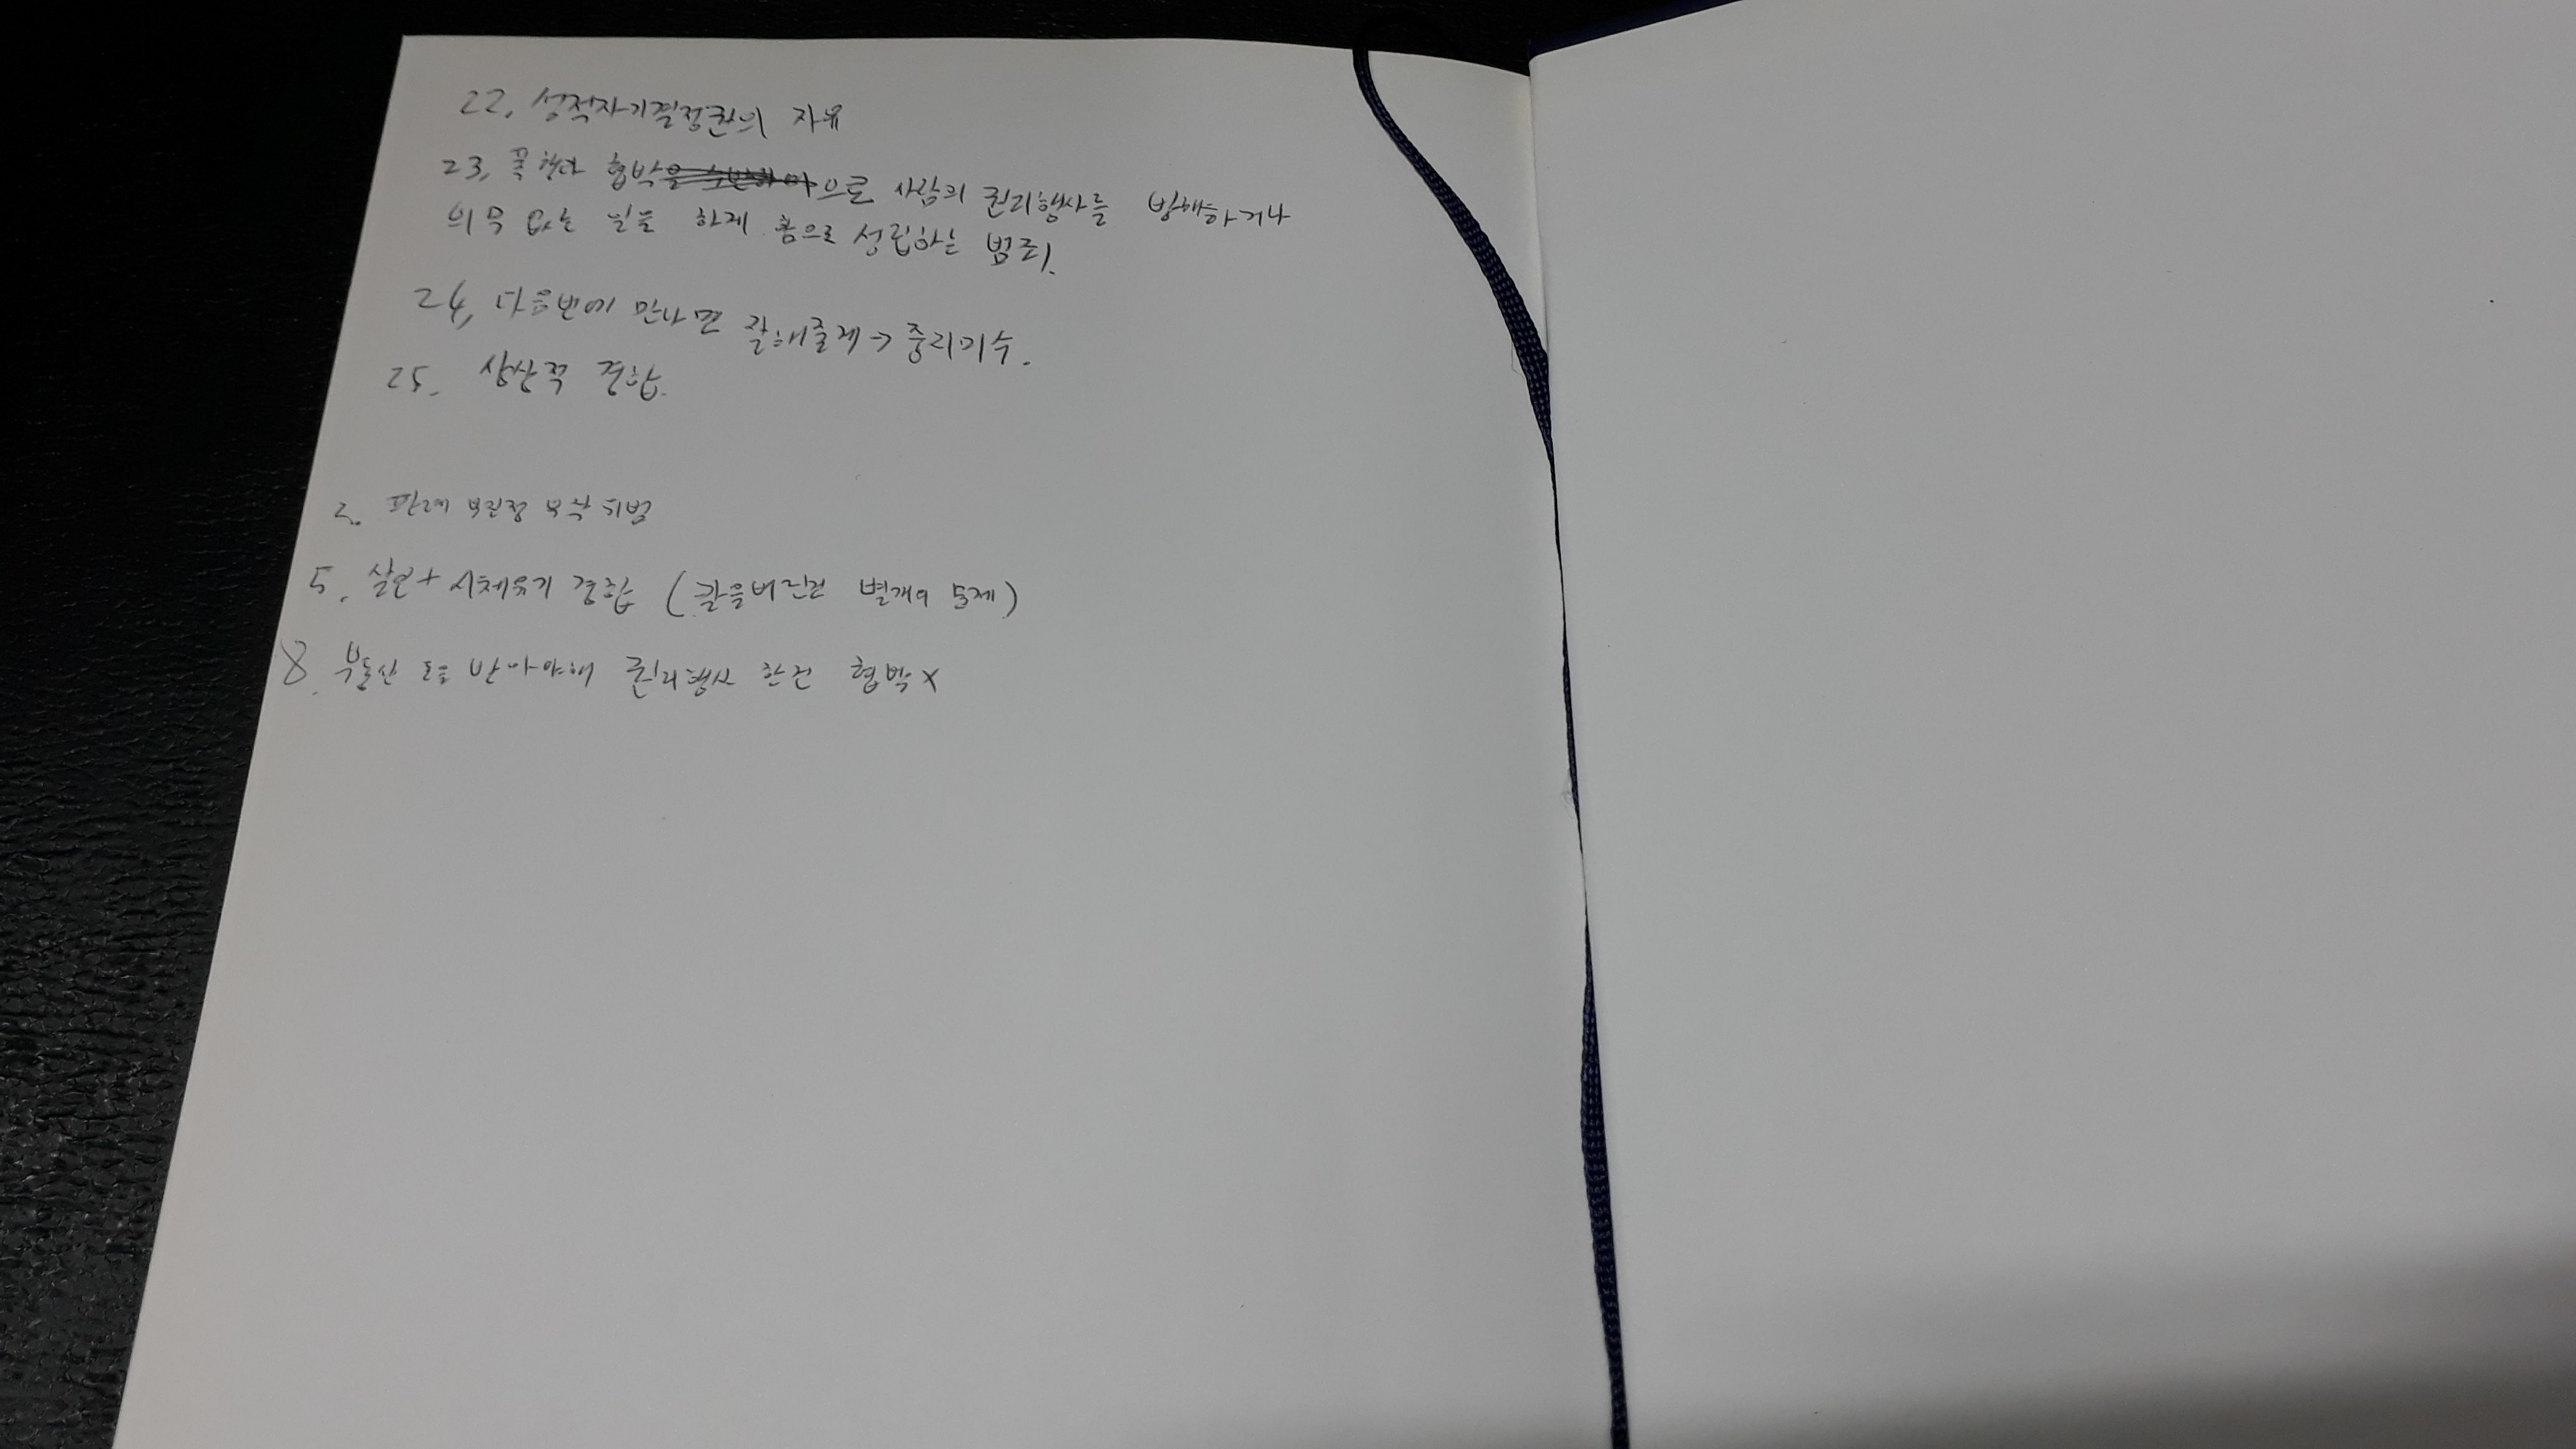 22. 성적자기결정권의 자유
23. 폭행과 협박으로 사람의 권리행사를 방해하거나
의무 없는 일을 하게 함으로 성립하는 범죄.
24. 다음번에 만나면 잘해줄게 → 중지미수.
25. 상상적 경합.
2. 판례 부진정 부작위범
5. 살인 + 시체유기 경합 (칼을버린건 별개의 문제)
8. 부동산 돈을 받아야해 권리행사 한건 협박 X